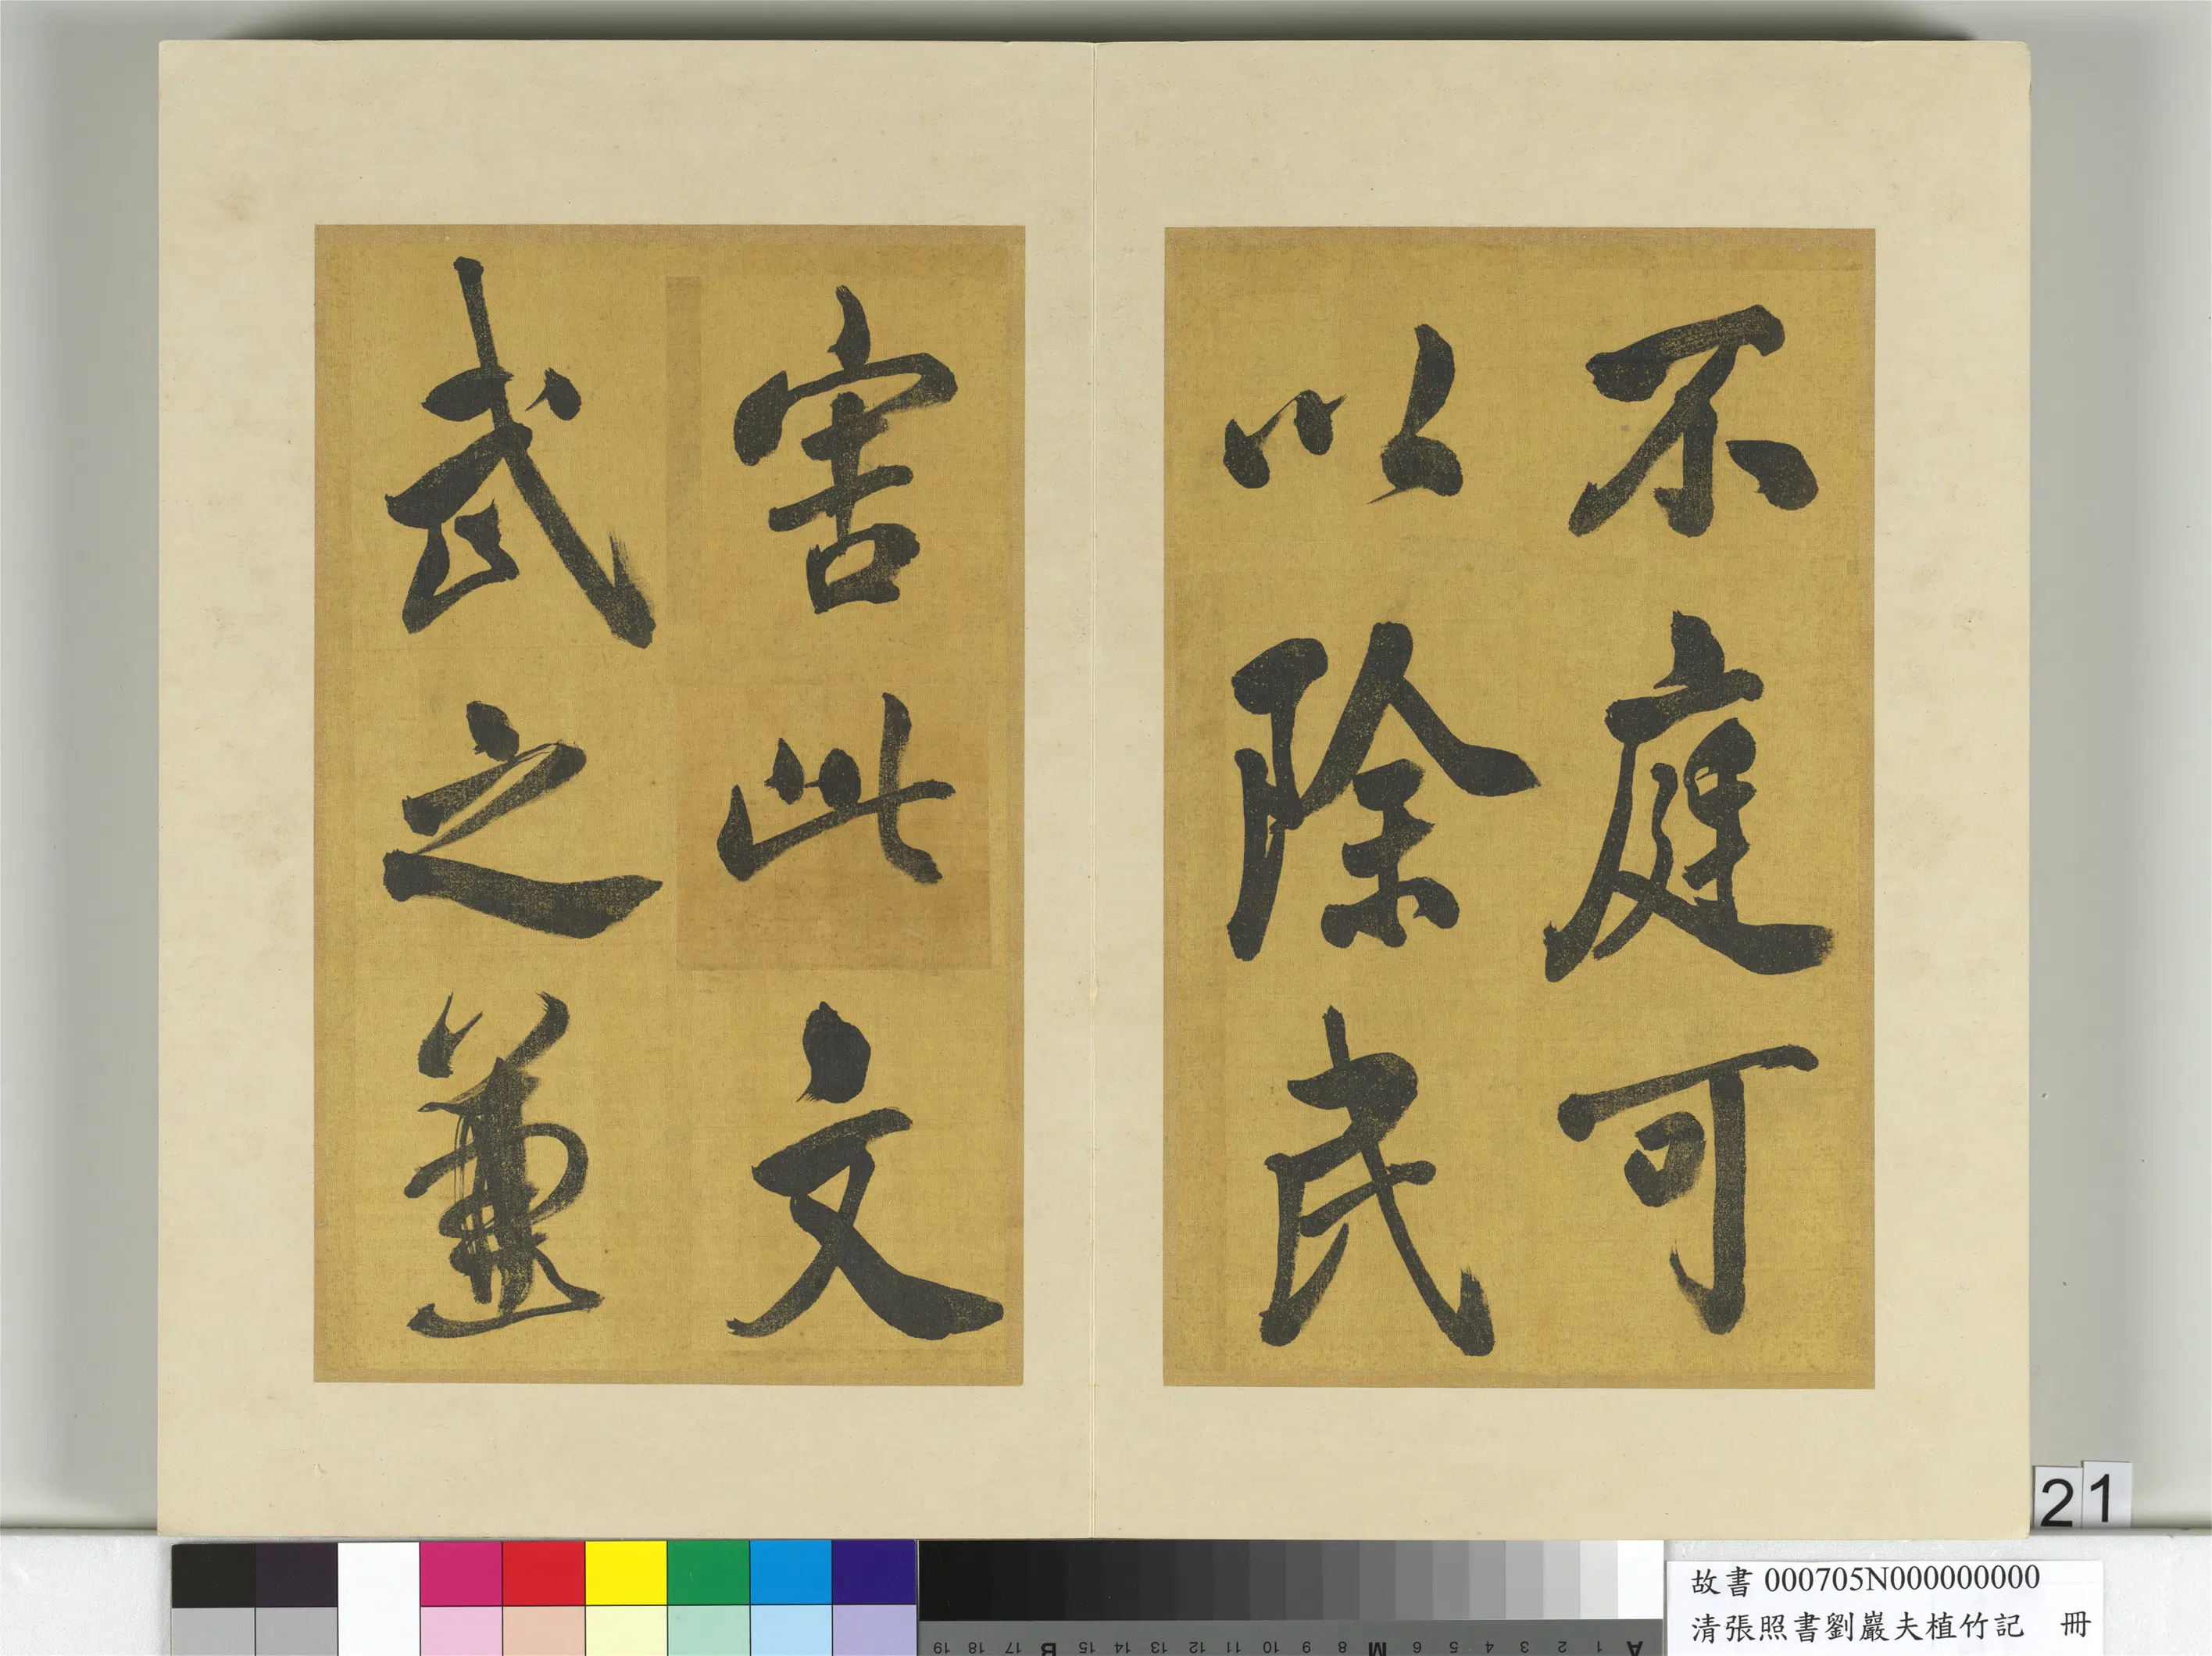 不庭可
以除民
害此文
武之兼
21
故書 000705N000000000
清張照書劉巖夫植竹記 冊
A 1 2 3 4 5 6 M 8 9 10 11 12 13 14 15 B 17 18 19